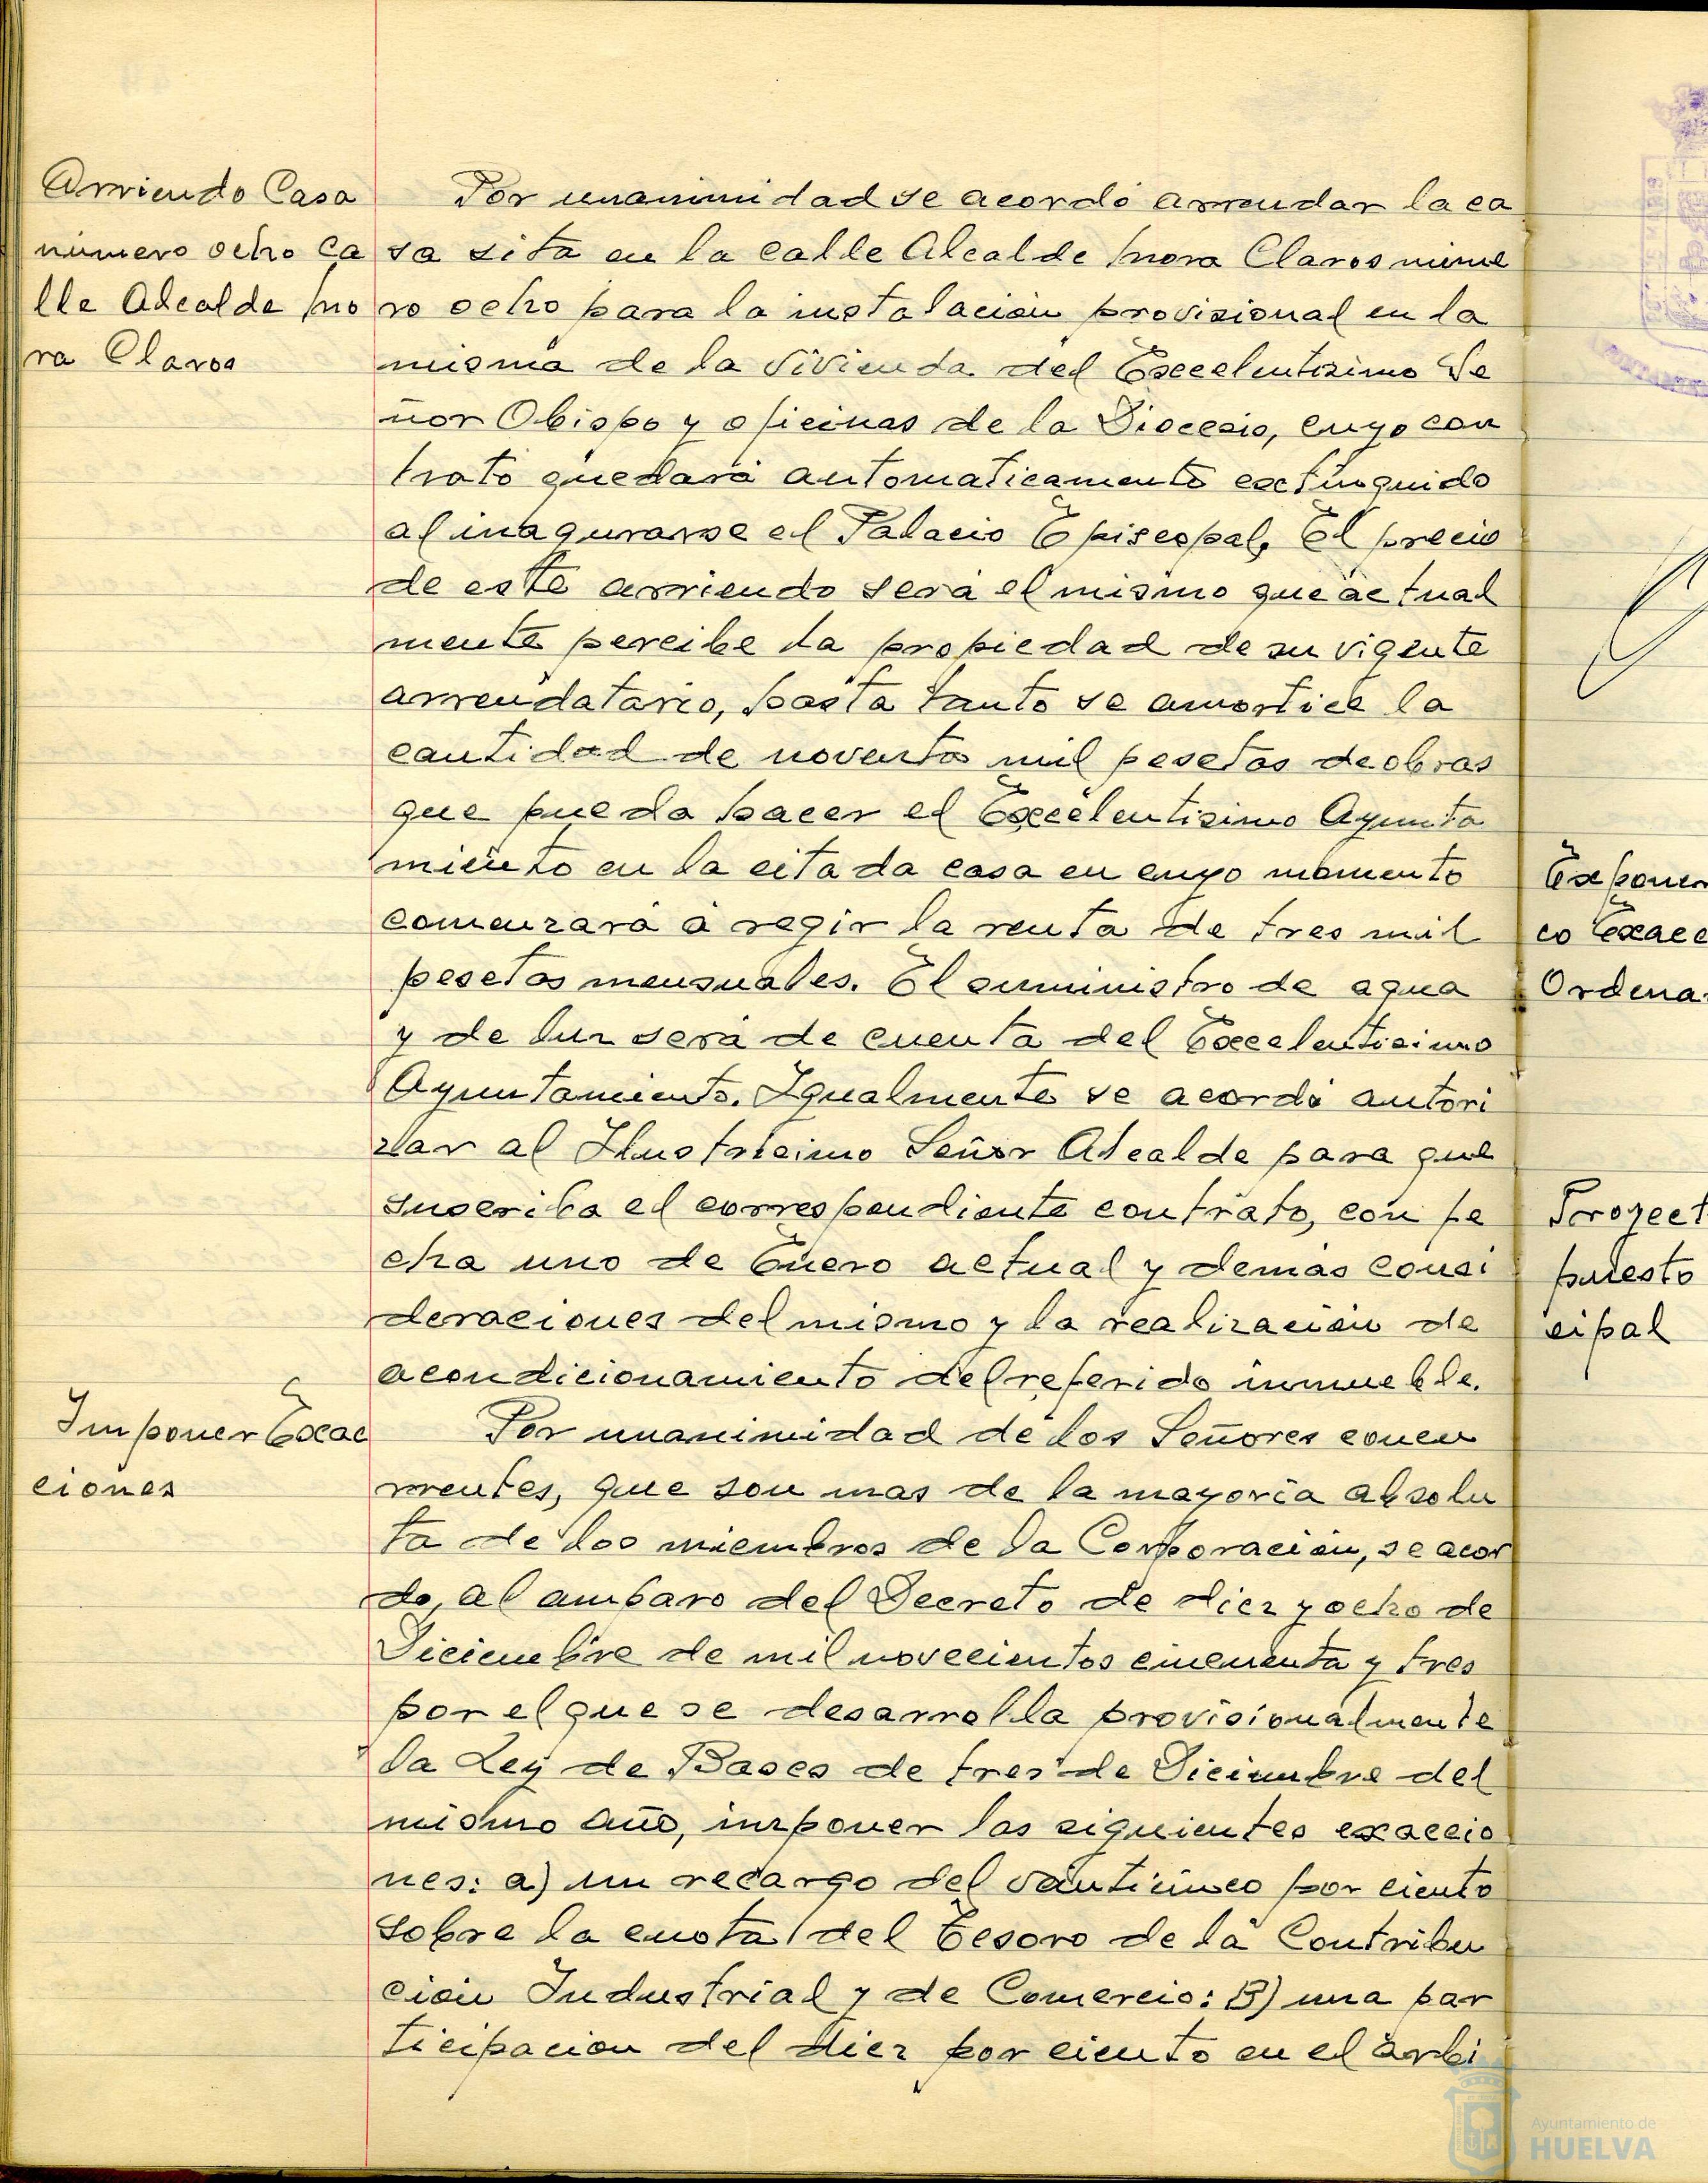 Arriendo Casa
número ocho ca
lle Alcalde mo
ra Claros
Por unanimidad se acordó arrendar la ca
sa sita en la calle Alcalde mora Claros núme
ro ocho para la instalación provisional en la
misma de la vivienda del Excelentisimo Se
ñor Obispo y oficinas de la Diocesis, cuyo con
trato quedará automaticamente extinguido
al inagurarse el Palacio Episcopal, El precio
de este arriendo será el mismo que actual
mente percibe la propiedad de su vigente
arrendatario, hasta tanto se amortice la
cantidad de noventa mil pesetas de obras
que pueda hacer el Excelentisimo Ayunta
miento en la citada casa en cuyo momento
comenzará a regir la renta de tres mil
pesetas mensuales. El suministro de agua
y de luz será de cuenta del Excelentisimo
Ayuntamiento. Igualmente se acordó autori
zar al Ilustrisimo Señor Alcalde para que
suscriba el correspondiente contrato, con fe
cha uno de Enero actual y demás consi
deraciones del mismo y la realización de
acondicionamiento del referido inmueble.
Imponer Exac
ciones
Por unanimidad de los Señores concu
rrentes, que son mas de la mayoría absolu
ta de los miembros de la Corporación, se acor
do, al amparo del Decreto de diez y ocho de
Diciembre de mil novecientos cincuenta y tres
por el que se desarrolla provisionalmente
la Ley de Bases de tres de Diciembre del
mismo año, imponer las siguientes exaccio
nes: a) un recargo del veinticinco por ciento
sobre la cuota del Tesoro de la Contribu
ción Industrial y de Comercio: B) una par
ticipación del diez por ciento en el arbi
Exponer
co Exacc
Ordena
Proyect
puesto
cipal
Ayuntamiento de
HUELVA